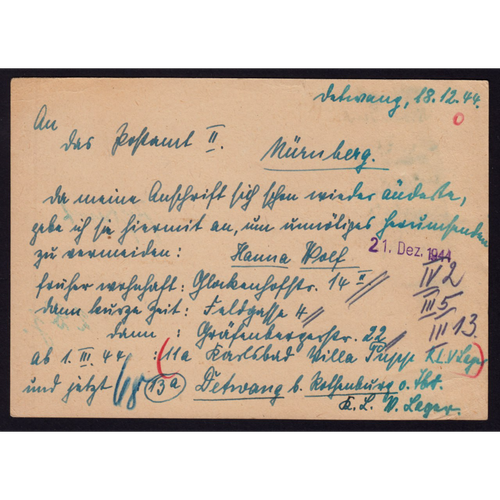 Detwang, 18.12.44.
An
das Postamt II.
Nürnberg.
Da meine Anschrift sich schon wieder änderte,
gebe ich sie hiermit an, um unnötiges herumsenden
zu vermeiden: Hanna Wolf
21. Dez. 1944
früher wohnhaft: Glockenhofstr. 14 II
IV 2
dann kurze Zeit: Feldgasse 4
III 5
dann: Gräfenbergerstr. 22
III 13.
ab 1. III. 44: (11a Karlsbad Villa K.L.V Lager)
und jetzt 13a Detwang b. Rothenburg o. Tbr.
K. L. V. Lager.